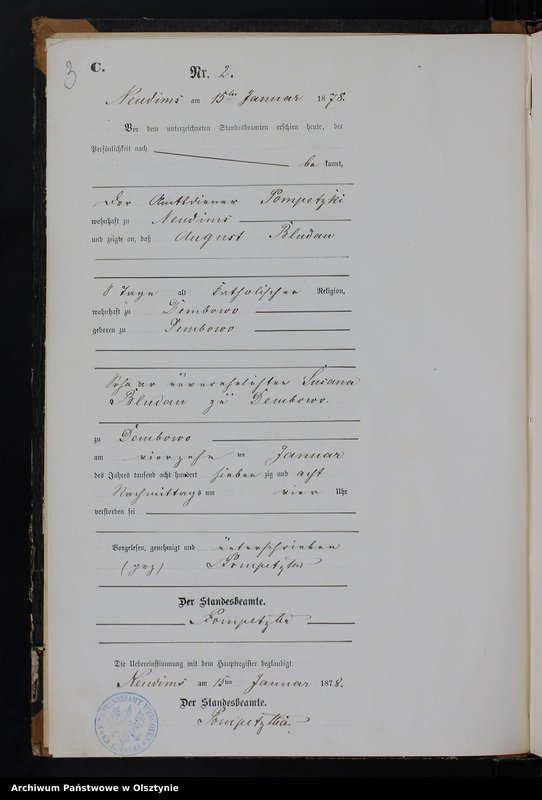 3
C.
Nr. 2.
Neudims am 15ten Januar 1878.
Vor dem unterzeichneten Standesbeamten erschien heute, der
Persönlichkeit nach
be kannt,
Der Amtsdiener Pompetzki
wohnhaft zu Neudims
und zeigte an, daß August Bludau
8 Tage alt katholischer Religion,
wohnhaft zu Dembowo
geboren zu Dembowo
Sohn der unverehelichten Susanna
Bludau zu Dembowo.
zu Dembowo
am vierzehn ten Januar
des Jahres tausend acht hundert sieben zig und acht
Nachmittags um vier Uhr
verstorben sei
Vorgelesen, genehmigt und unterschrieben
(gez) Pompetzki
Der Standesbeamte.
Pompetzki
Die Uebereinstimmung mit dem Hauptregister beglaubigt.
Neudims am 15ten Januar 1878.
Der Standesbeamte.
Pompetzki.
Archiwum Państwowe w Olsztynie